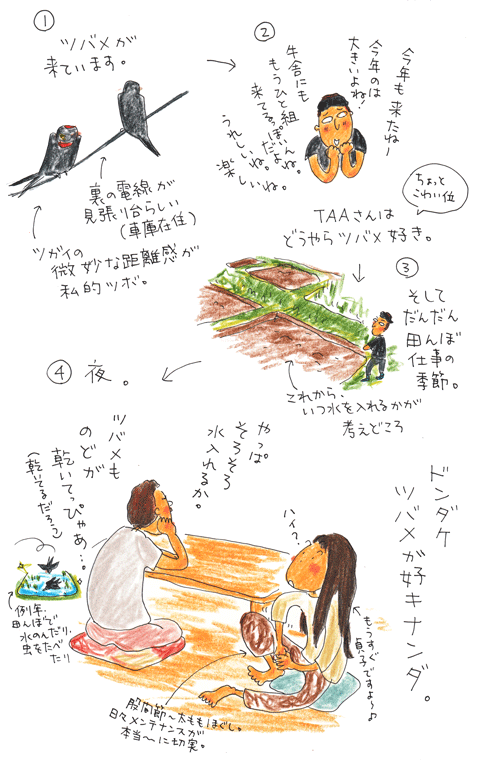 ①
ツバメが
来ています。
裏の電線が
見張り台らしい
(車庫在住)
ツガイの
微妙な距離感が
私的ツボ。
②
今年も来たねー
今年のは
大きいよね!
牛舎にも
もうひと組
来てるっぽいよね。
うれしいね。
楽しいね。
ちょっと
こわい位
TAAさんは
どうやらツバメ好き。
③
そして
だんだん
田んぼ
仕事の
季節。
これから、
いつ水を入れるかが
考えどころ
④ 夜。
やっぱ
そろそろ
水入れるか。
ツバメも
のどが
乾いてっぴゃあ…。
(乾いてるだろう)
例年、
田んぼで
水のんだり、
虫をたべ
たり
ハイ?
もうすぐ
貞子ですよ〜♪
股関節〜太ももほぐし。
日々メンテナンスが
本当〜に切実。
ドンダケ
ツバメが好キナンダ。